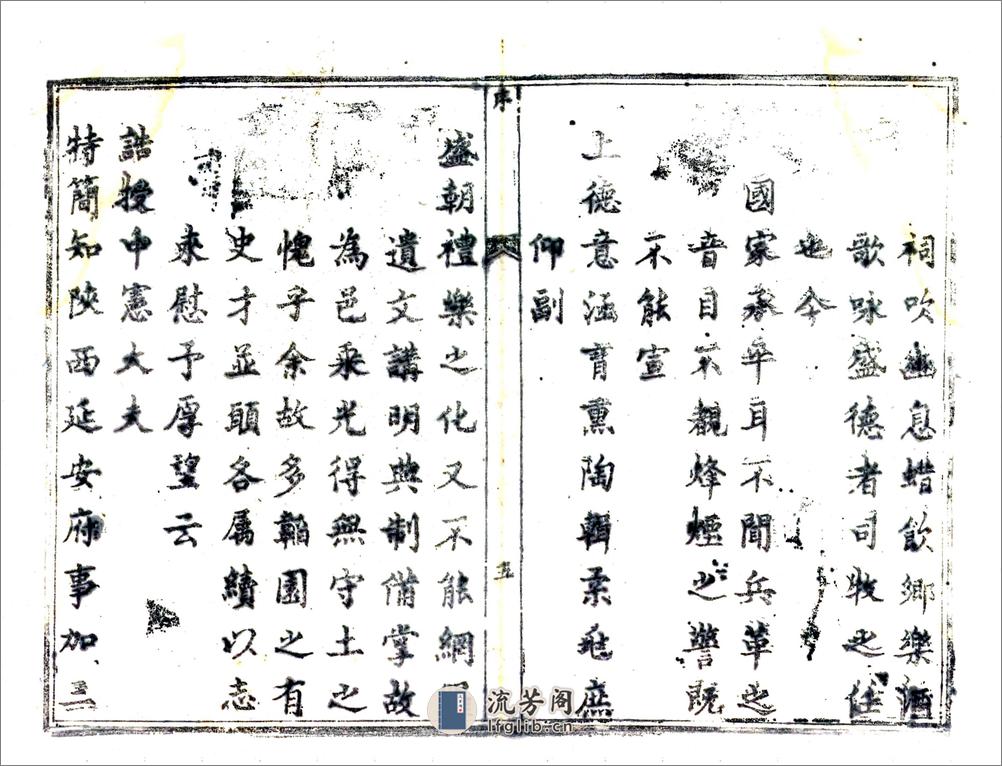 祠吹豳息蜡飲鄉樂酒
歌咏盛德者司牧之任
也今
國家承平耳不聞兵革之
音目不覩烽煙之警既
不能宣
上德意涵育熏陶輯柔庶
仰副
序
五
盛朝禮樂之化又不能網
遺文講明典制備掌故
為邑乘光得無守土之
愧乎余故多韜園之有
史才並頤各屬續以志
來慰予厚望云
誥授中憲大夫
特簡知陝西延安府事加三
流芳阁
lfglib.cn